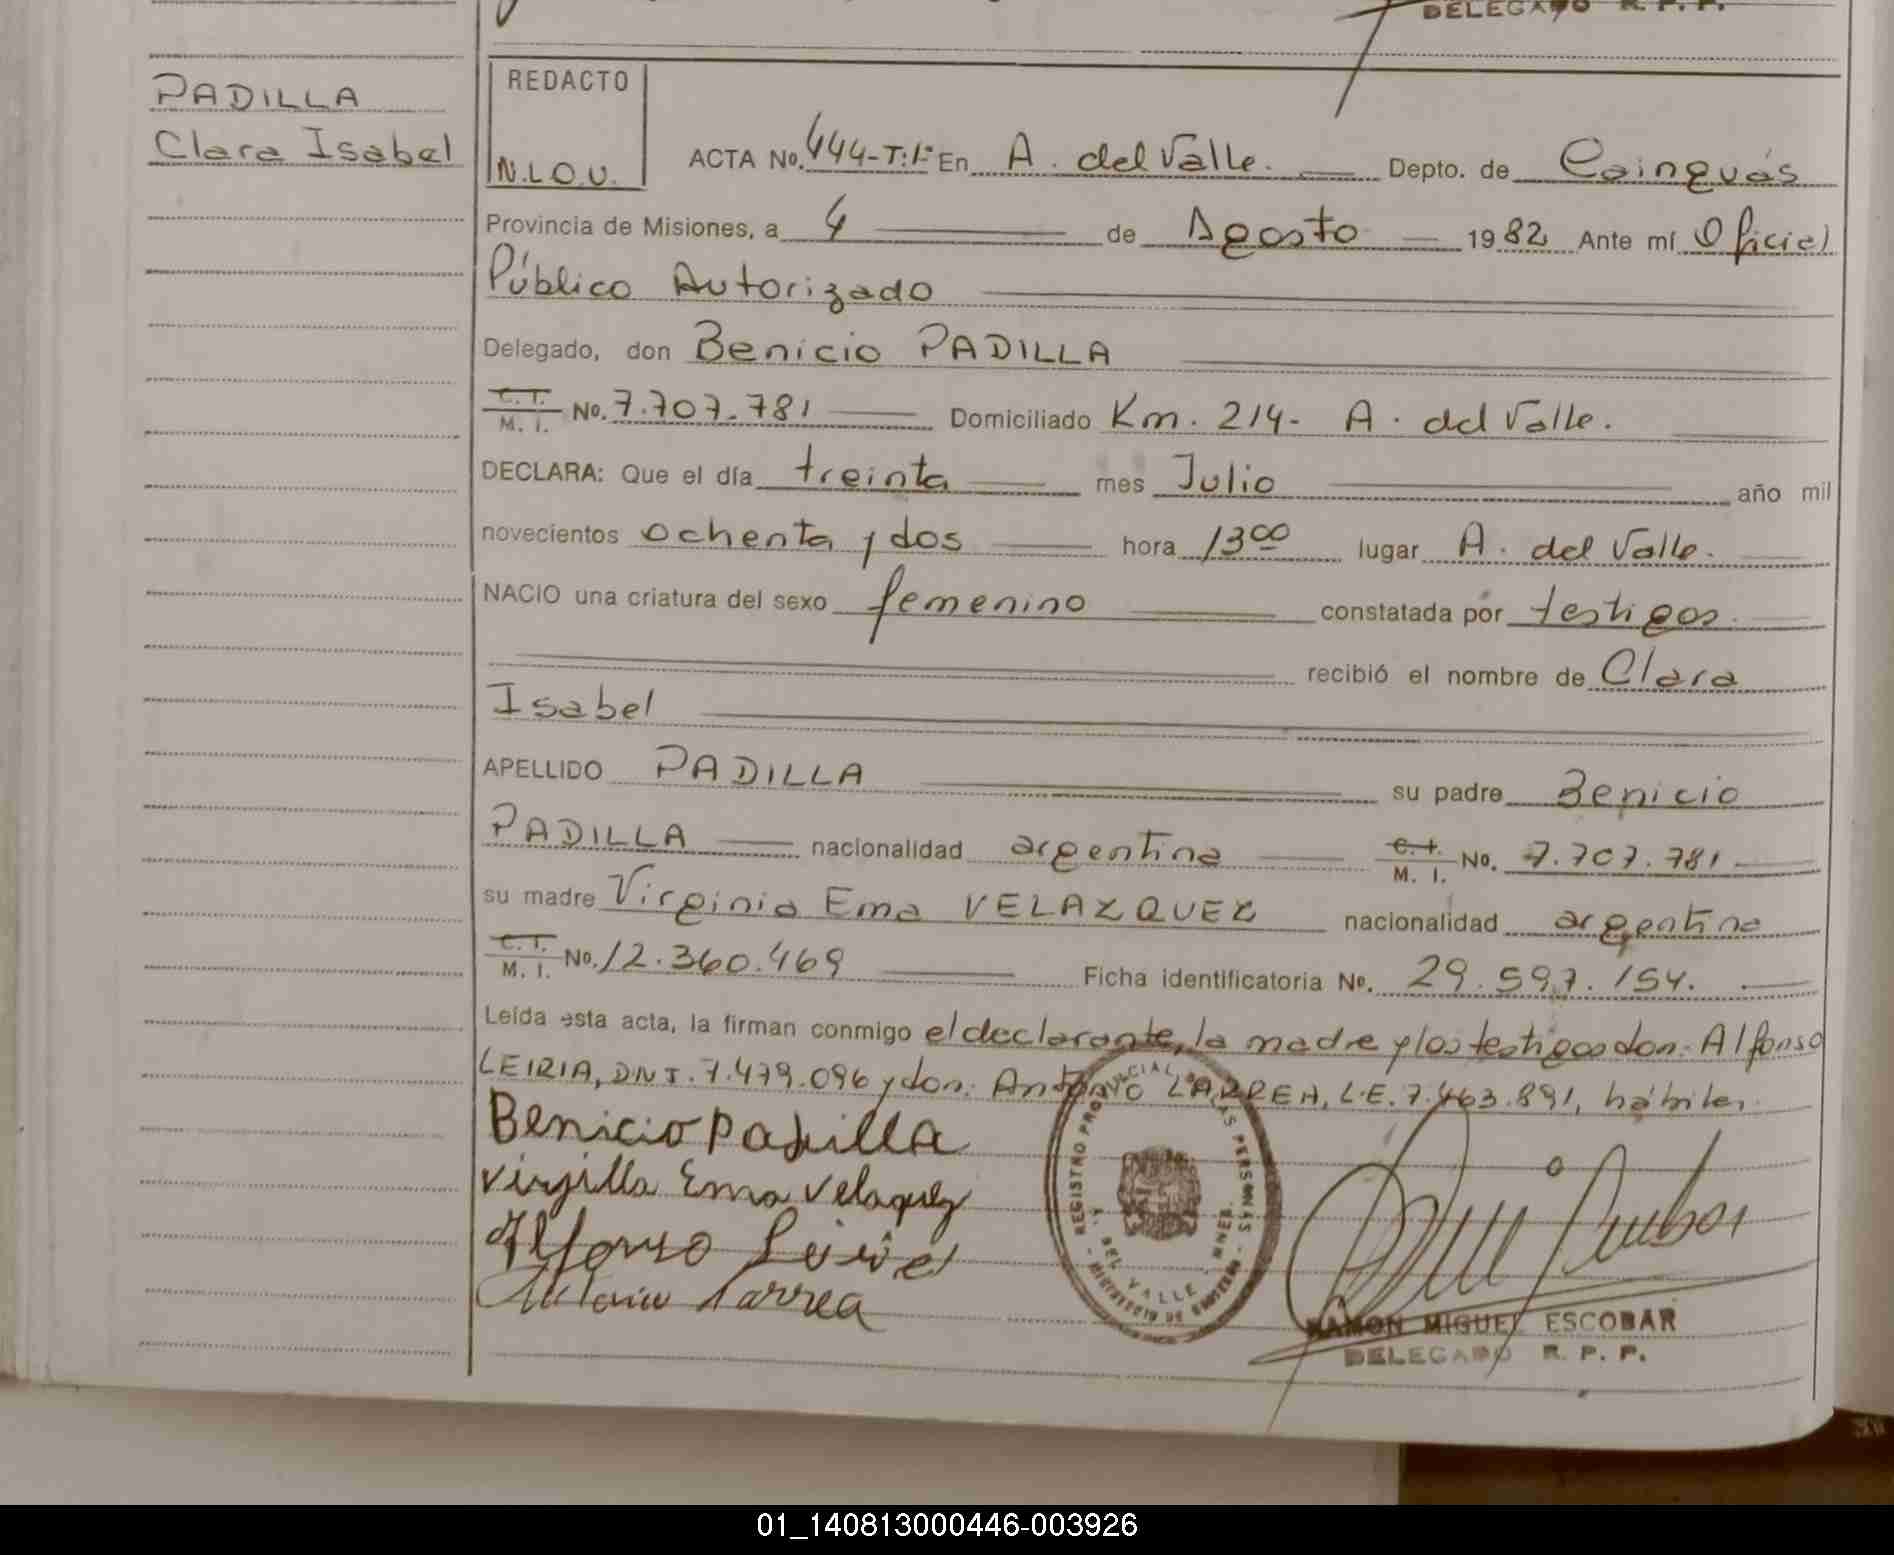 DELEGADO R. P. P.
PADILLA
Clara Isabel
REDACTO
N.L.O.V.
ACTA No. 444-T:1º En A. del Valle. Depto. de Cainguás
Provincia de Misiones, a 4 de Agosto 1982 Ante mí Oficial
Público Autorizado
Delegado, don Benicio PADILLA
C. I. M. I. No. 7.707.781 Domiciliado Km. 214- A. del Valle.
DECLARA: Que el día treinta mes Julio año mil
novecientos ochenta y dos hora 13 00 lugar A. del Valle.
NACIO una criatura del sexo femenino constatada por testigos
recibió el nombre de Clara
Isabel
APELLIDO PADILLA su padre Benicio
PADILLA nacionalidad argentina C. I. M. I. No. 7.707.781
su madre Virginia Ema VELAZQUEZ nacionalidad argentina
C. I. M. I. No. 12.360.469 Ficha identificatoria No. 29.597.154.
Leída esta acta, la firman conmigo el declarante, la madre y los testigos don: Alfonso
LEIRIA, DNI. 7.479.096 y don: Antonio LARREA, L.E. 7.463.891, hábiles
Benicio Padilla
Virjilla Ema Velaquez
Alfonso
Antonio Larrea
REGISTRO PROVINCIAL DE LAS PERSONAS
A. DEL VALLE - MNES.
MINISTERIO DE GOBIERNO
RAMON MIGUEL ESCOBAR
DELEGADO R. P. P.
01_140813000446-003926